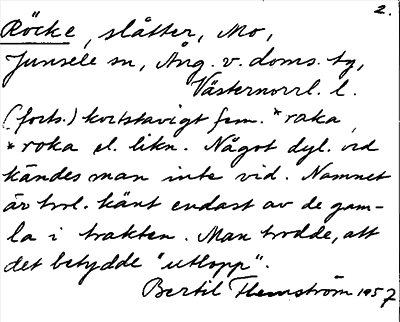 2.
Röcke, slåtter, Mo,
Junsele sn, Ång. v. doms. tg,
Västernorrl. l.
(forts.) kortstavigt fem. *raka,
*roka el. likn. Något dyl. ord
kändes man inte vid. Namnet
är trol. känt endast av de gam-
la i trakten. Man trodde, att
det betydde "utlopp".
Bertil Flemström 1957